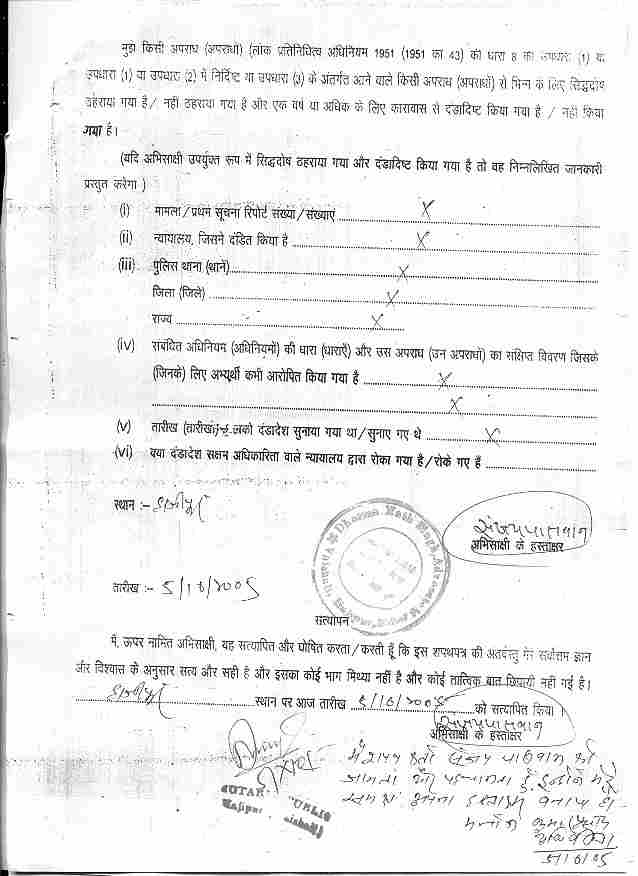 मुझे किसी अपराध (अपराधों) (लोक प्रतिनिधित्व अधिनियम 1951 (1951 का 43) की धारा 8 की उपधारा (1) या
उपधारा (1) या उपधारा (2) में निर्दिष्ट या उपधारा (3) के अंतर्गत आने वाले किसी अपराध (अपराधों) से भिन्न के लिए सिद्धदोष
ठहराया गया है / नहीं ठहराया गया है और एक वर्ष या अधिक के लिए कारावास से दंडादिष्ट किया गया है / नहीं किया
गया है।
(यदि अभिसाक्षी उपर्युक्त रूप में सिद्धदोष ठहराया गया और दंडादिष्ट किया गया है तो वह निम्नलिखित जानकारी
प्रस्तुत करेगा )
(i) मामला/प्रथम सूचना रिपोर्ट संख्या/संख्याएं X
(ii) न्यायालय, जिसने दंडित किया है X
(iii) पुलिस थाना (थाने) X
जिला (जिले) X
राज्य X
(iv) संबंधित अधिनियम (अधिनियमों) की धारा (धाराएँ) और उस अपराध (उन अपराधों) का संक्षिप्त विवरण जिसके
(जिनके) लिए अभ्यर्थी कभी आरोपित किया गया है X
X
(v) तारीख (तारीखें) दंडादेश सुनाया गया था/सुनाए गए थे X
(vi) क्या दंडादेश सक्षम अधिकारिता वाले न्यायालय द्वारा रोका गया है/रोके गए हैं
स्थान :- हाजीपुर
Dharma Nath Singh, Advocate
संजय पासवान
अभिसाक्षी के हस्ताक्षर
तारीख :- 5/10/2005
सत्यापन
मैं, ऊपर नामित अभिसाक्षी, यह सत्यापित और घोषित करता/करती हूँ कि इस शपथपत्र की अंतर्वस्तु मेरे सर्वोत्तम ज्ञान
और विश्वास के अनुसार सत्य और सही है और इसका कोई भाग मिथ्या नहीं है और कोई तात्विक बात छिपायी नहीं गई है।
हाजीपुर स्थान पर आज तारीख 5/10/2005 को सत्यापित किया।
संजय पासवान
अभिसाक्षी के हस्ताक्षर
मैं शपथ कर्ता संजय पासवान को
जानता और पहचानता हूँ इन्होंने मेरे
समक्ष अपना हस्ताक्षर बनाए है।
NOTARY PUBLIC
Hajipur